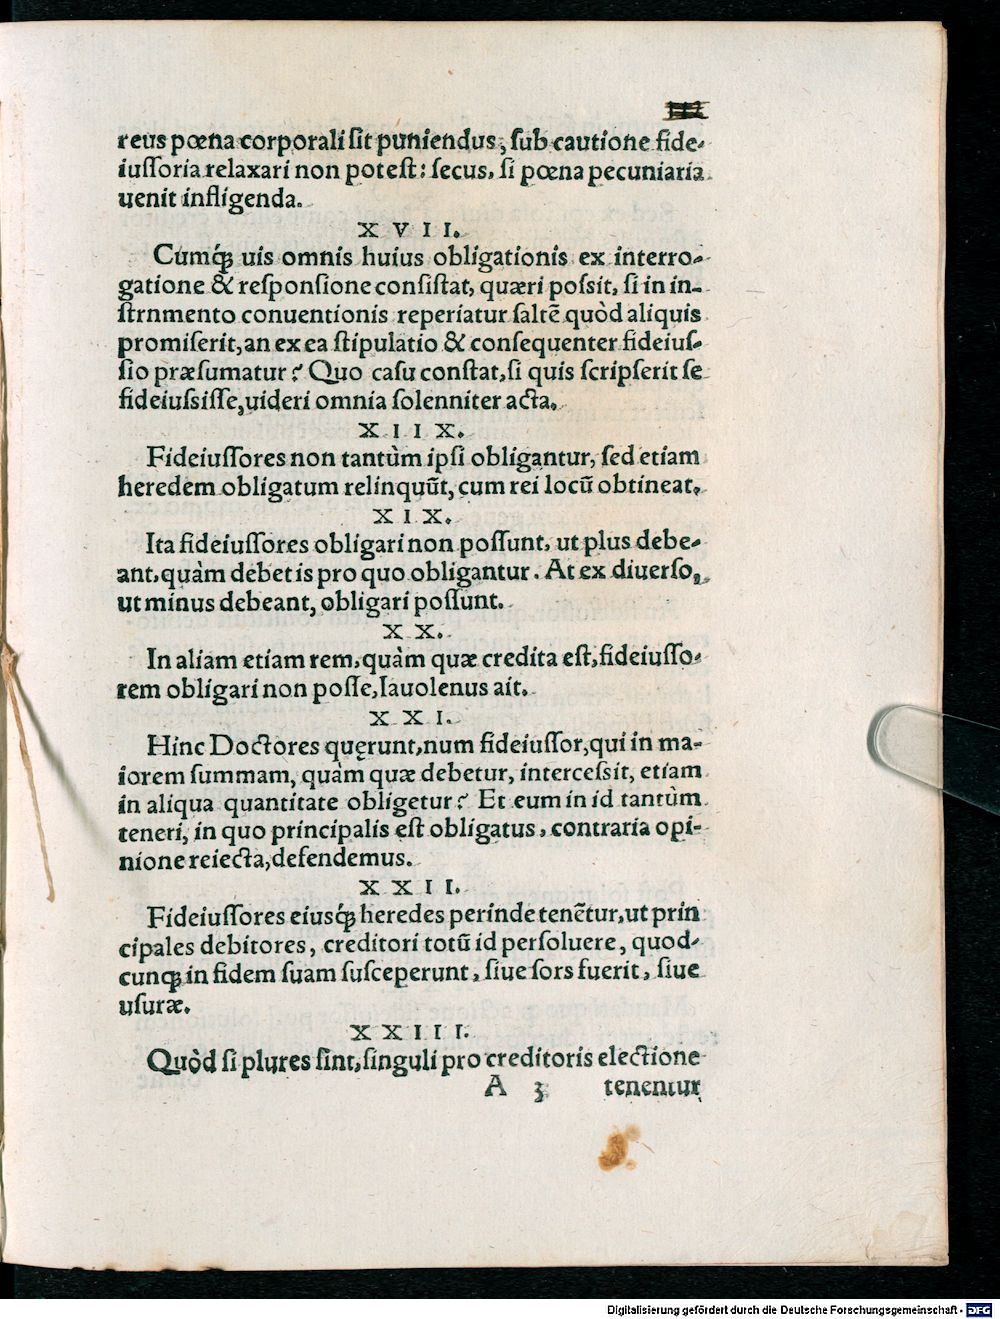 reus pœna corporali sit puniendus, sub cautione fide-
iussoria relaxari non potest: secus, si pœna pecuniaria
uenit infligenda.
X V I I.
Cumq́; uis omnis huius obligationis ex interro-
gatione & responsione consistat, quæri possit, si in in-
strnmento conuentionis reperiatur saltē quòd aliquis
promiserit, an ex ea stipulatio & consequenter fideius-
sio præsumatur? Quo casu constat, si quis scripserit se
fideiussisse, uideri omnia solenniter acta.
X I I X.
Fideiussores non tantùm ipsi obligantur, sed etiam
heredem obligatum relinquūt, cum rei locū obtineat.
X I X.
Ita fideiussores obligari non possunt, ut plus debe-
ant, quàm debet is pro quo obligantur. At ex diuerso,
ut minus debeant, obligari possunt.
X X.
In aliam etiam rem, quàm quæ credita est, fideiusso-
rem obligari non posse, Iauolenus ait.
X X I.
Hinc Doctores quęrunt, num fideiussor, qui in ma-
iorem summam, quàm quæ debetur, intercessit, etiam
in aliqua quantitate obligetur? Et eum in id tantùm
teneri, in quo principalis est obligatus, contraria opi-
nione reiecta, defendemus.
X X I I.
Fideiussores eiusq́; heredes perinde tenētur, ut prin
cipales debitores, creditori totū id persoluere, quod-
cunq; in fidem suam susceperunt, siue sors fuerit, siue
usuræ.
X X I I I.
Quòd si plures sint, singuli pro creditoris electione
A 3 tenentur
Digitalisierung gefördert durch die Deutsche Forschungsgemeinschaft - DFG